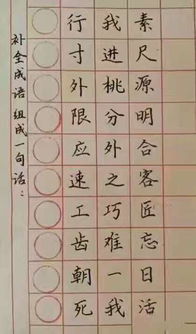 补全成语 组成一句话：
行我素
寸进尺
外桃源
限分明
应外合
速之客
工巧匠
齿难忘
朝一日
死我活